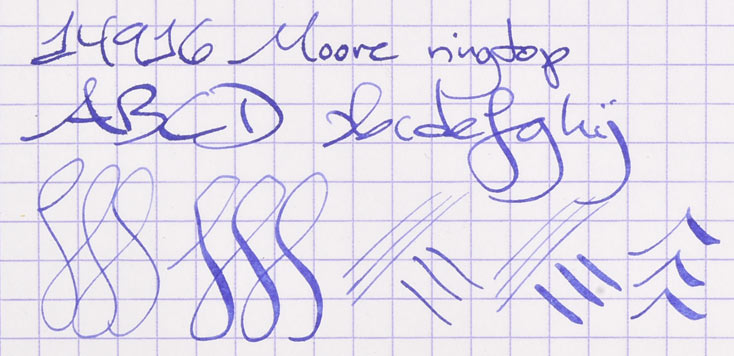 14916 Moore ringtop
ABCD abcdefghij